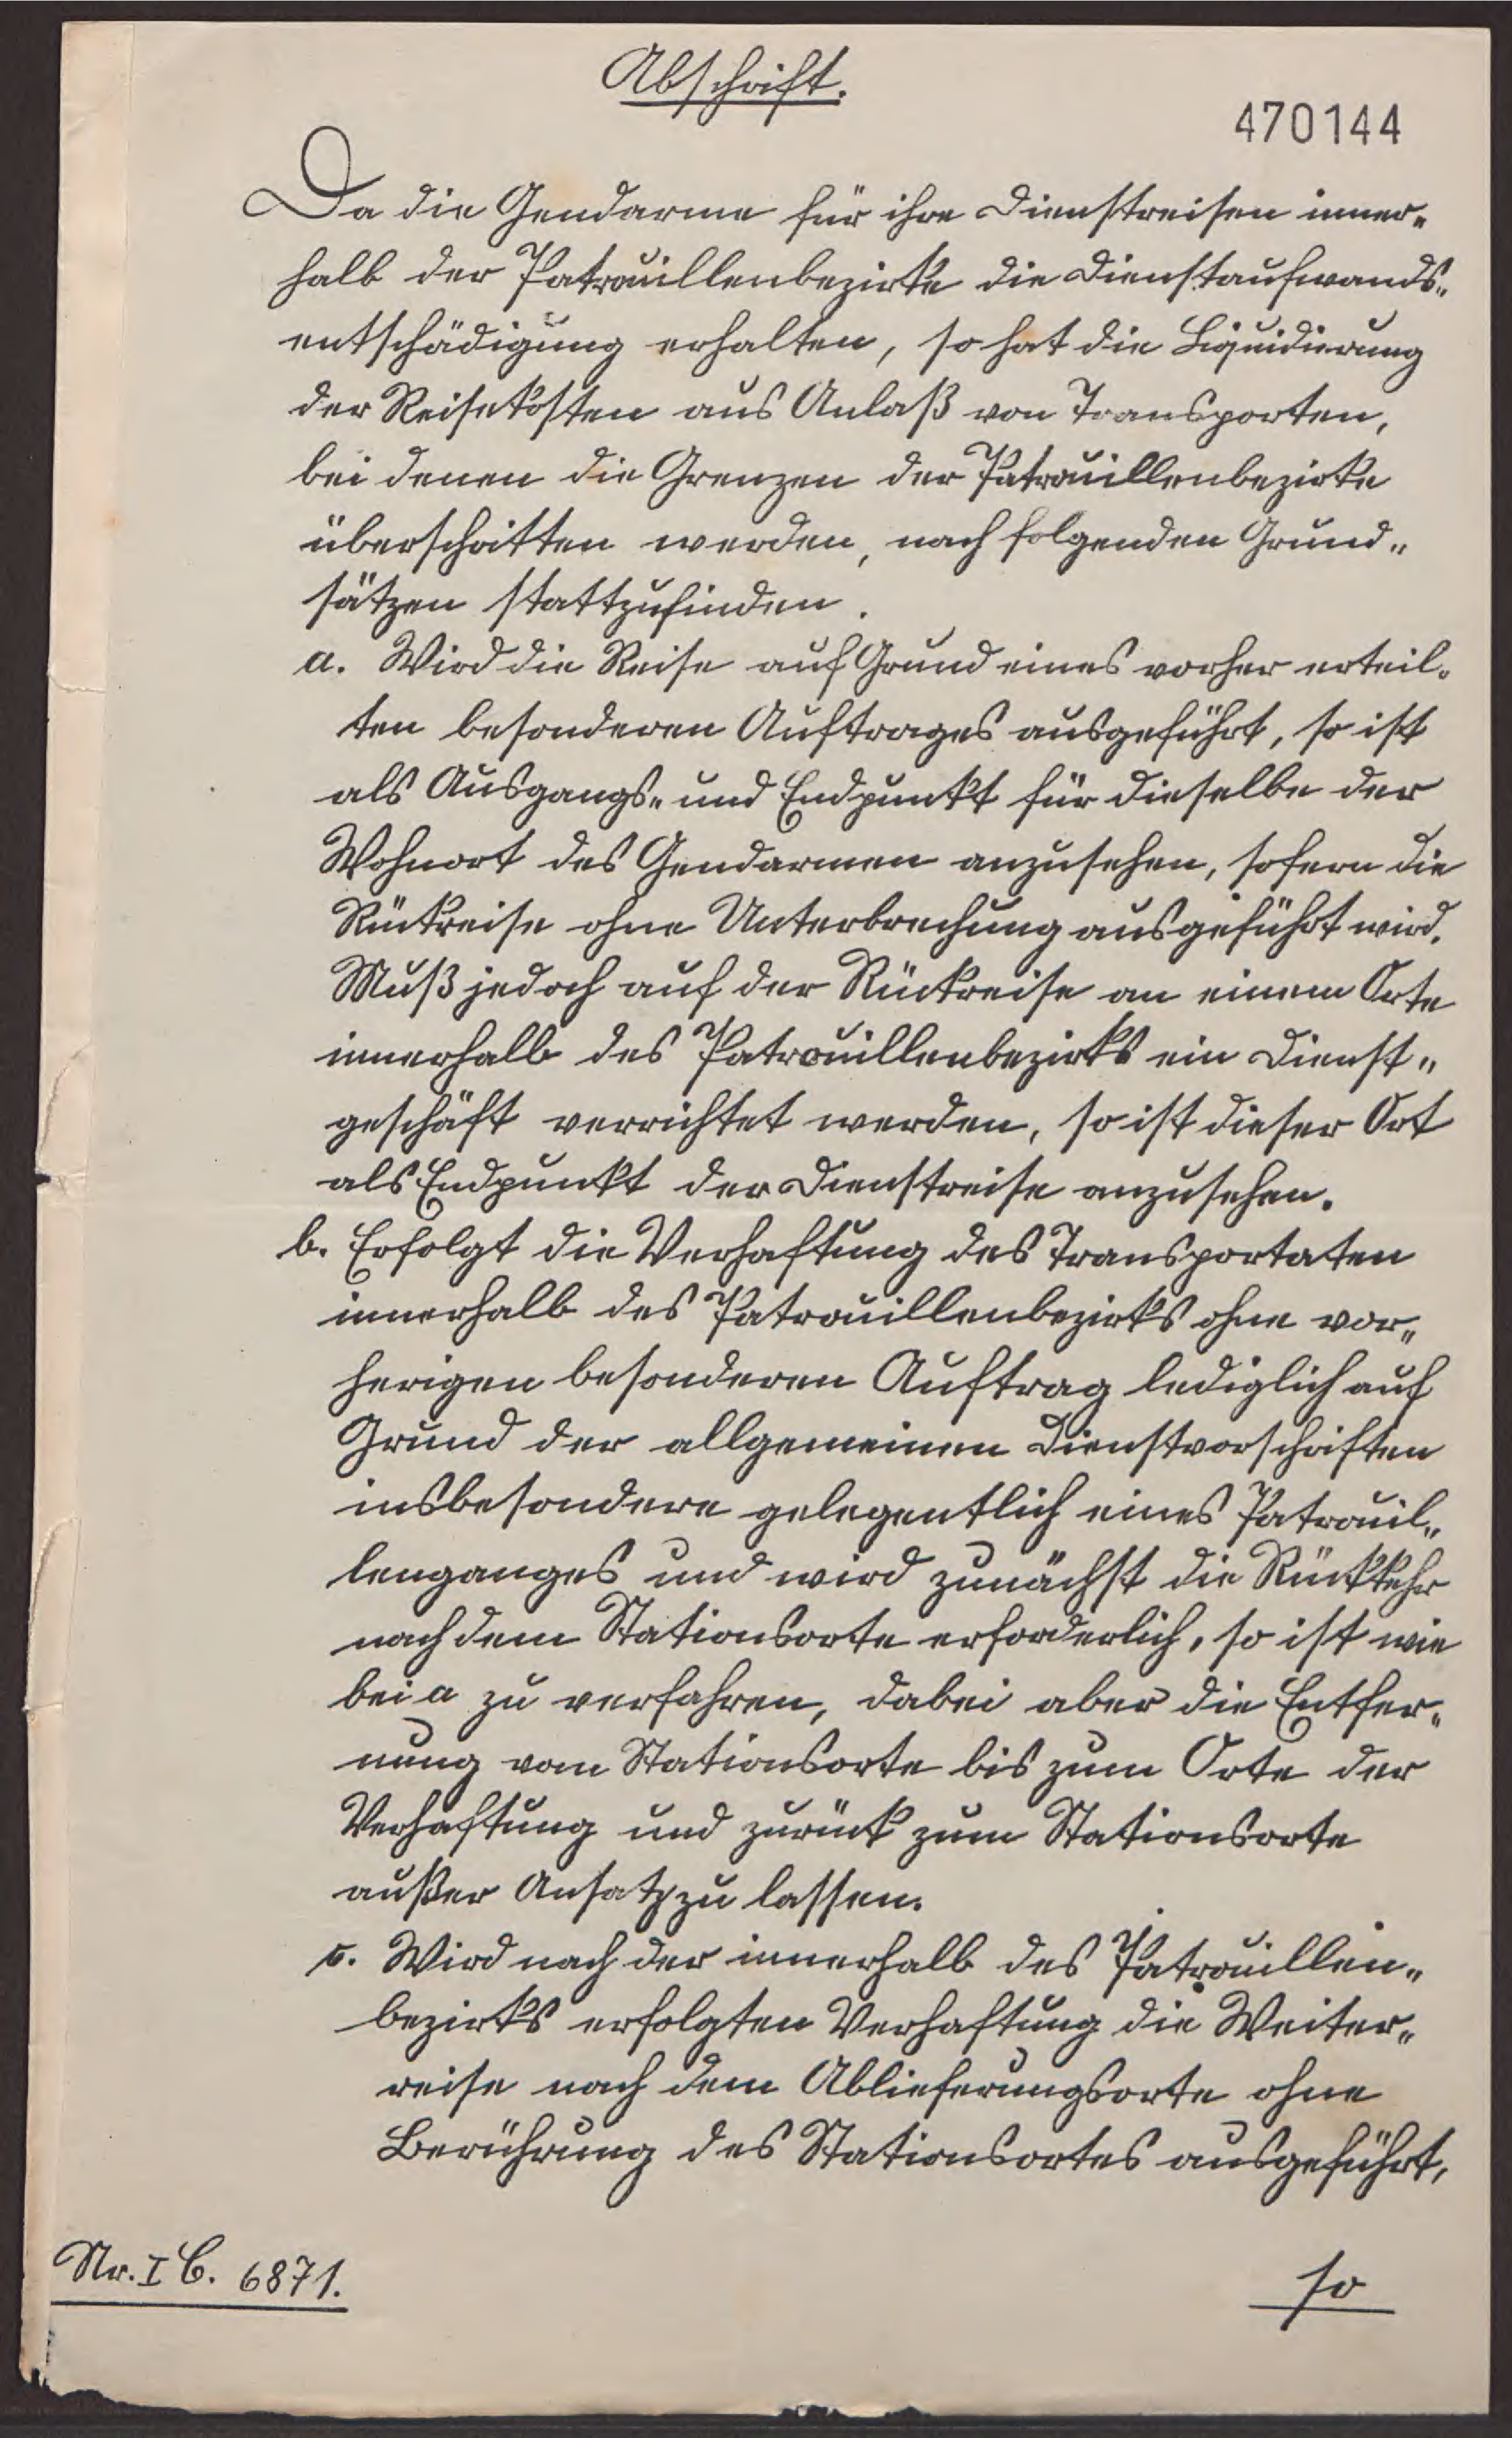 Abschrift.
470144
Da die Gendarme für ihre Dienstreisen inner„
halb der Patrouillenbezirke die Dienstaufwands„
entschädigung erhalten, so hat die Liquidierung
der Reisekosten aus Anlaß von Transporten,
bei denen die Grenzen der Patrouillenbezirke
überschritten werden, nach folgenden Grund„
sätzen stattzufinden.
a. Wird die Reise auf Grund eines vorher erteil„
ten besonderen Auftrages ausgeführt, so ist
als Ausgangs„ und Endpunkt für dieselbe der
Wohnort des Gendarmen anzusehen, sofern die
Rückreise ohne Unterbrechung ausgeführt wird.
Muß jedoch auf der Rückreise an einem Orte
innerhalb des Patrouillenbezirks ein Dienst„
geschäft verrichtet werden, so ist dieser Ort
als Endpunkt der Dienstreise anzusehen.
b. Erfolgt die Verhaftung des Transportaten
innerhalb des Patrouillenbezirks ohne vor„
herigen besonderen Auftrag lediglich auf
Grund der allgemeinen Dienstvorschriften
insbesondere gelegentlich eines Patrouil„
lenganges und wird zunächst die Rückkehr
nach dem Stationsorte erforderlich, so ist wie
bei a zu verfahren, dabei aber die Entfer„
nung vom Stationsorte bis zum Orte der
Verhaftung und zurück zum Stationsorte
außer Ansatz zu lassen.
c. Wird nach der innerhalb des Patrouillen„
bezirks erfolgten Verhaftung die Weiter„
reise nach dem Ablieferungsorte ohne
Berührung des Stationsortes ausgeführt,
Nr. I C. 6871.
so